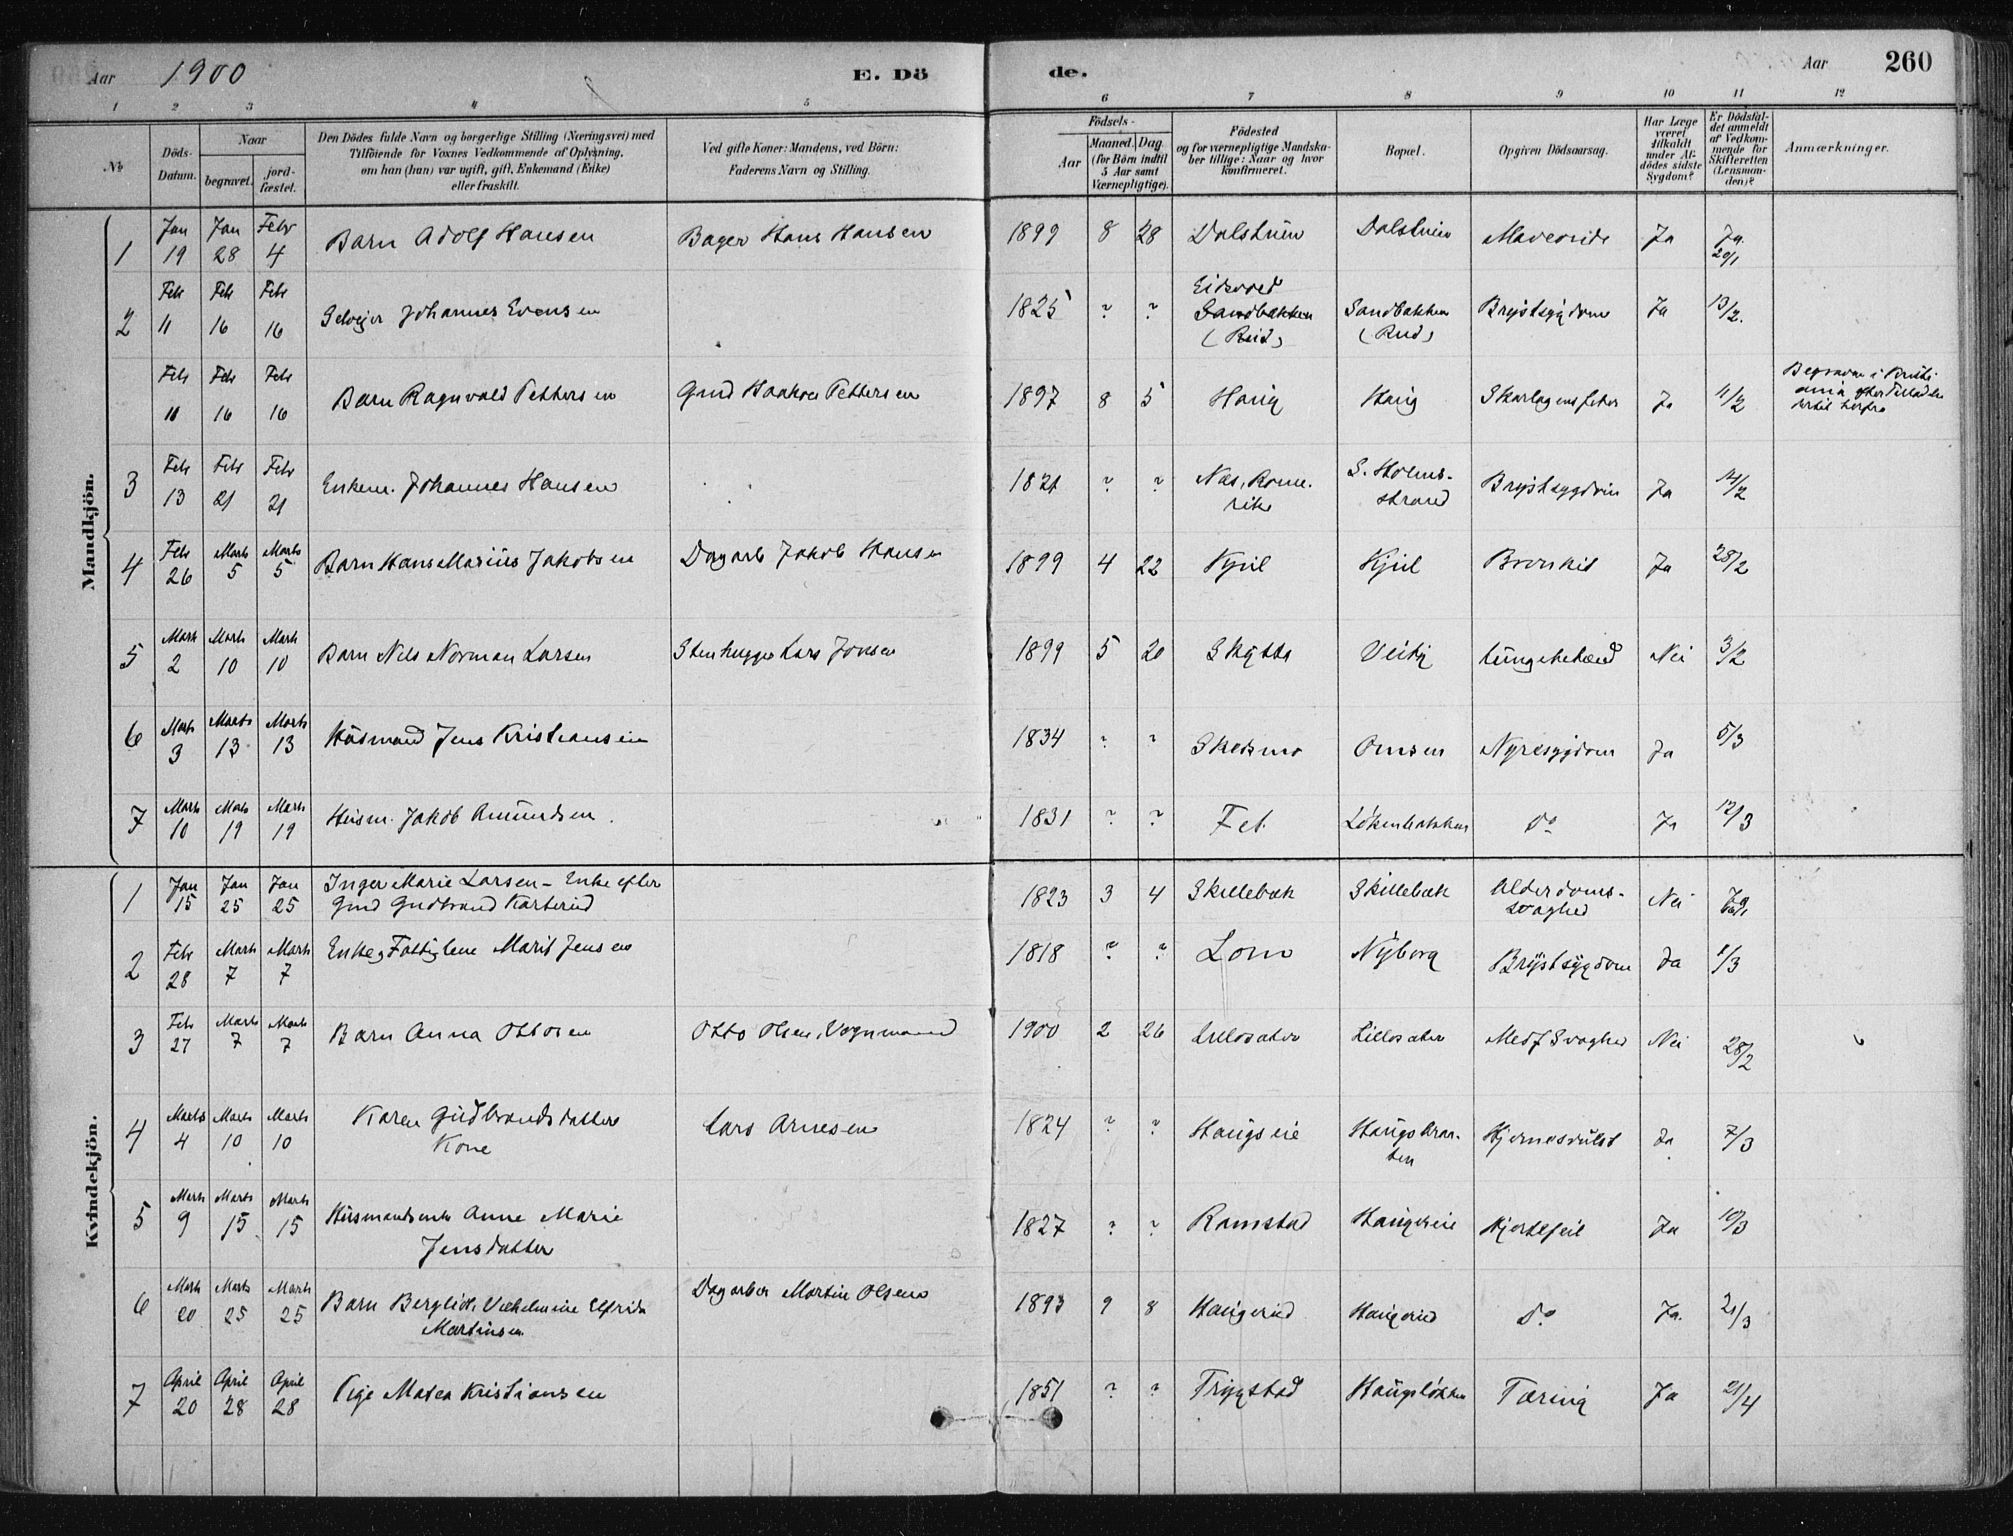 Aar 1900 E. Döde. Aar 260
1 2 3 4 5 6 7 8 9 10 11 12
No Döds-Datum. Naar begravet. jordfæstet. Den Dödes fulde Navn og borgerlige Stilling (Næringsvei) med Tilföiende for Voxnes Vedkommende af Oplysning, om han (hun) var ugift, gift, Enkemand (Enke) eller fraskilt. Ved gifte Koner: Mandens, ved Börn: Faderens Navn og Stilling. Födsels- Aar Maaned. Dag. (for Börn indtil 5 Aar samt Værnepligtige). Födested og for værnepligtige Mandskaber tillige: Naar og hvor konfirmeret. Bopæl. Opgiven Dödsaarsag. Har Læge været tilkaldt under Afdödes sidste Sygdom? Er Dödsfaldet anmeldt af Vedkommende for Skifteretten (Lensmanden)? Anmærkninger.
Mandkjön.
1 Jan 19 Jan 28 Febr 4 Barn Adolf Hansen Bager Hans Hansen 1899 8 28 Dalstuen Dalstuen Maveonde Ja Ja 20/1
2 Feb 11 Feb 16 Feb 16 Selveier Johannes Evensen 1825 ? ? Eidsvold Sandbakken (Rud) Sandbakken (Rud) Brystsygdom Ja 13/2.
Feb 10 Feb 16 Feb 16 Barn Ragnvald Pettersen Gmd Haakon Pettersen 1897 8 5 Haug Haug Skarlagensfeber Ja 11/2 Begraven i Kristiania efter Tilladelse dertil herfra
3 Feb 13 Feb 21 Feb 21 Enkem. Johannes Hansen 1821 ? ? Nes, Romerike S. Holmsstrand Brystsygdom Ja 14/2
4 Feb 26 Marts 5 Marts 5 Barn Hans Marius Jakobsen Dagarb Jakob Hansen 1899 4 22 Kjul Kjul Bronkit Ja 28/2
5 Marts 2 Marts 10 Marts 10 Barn Nils Norman Larsen Stenhugger Lars Jonsen 1899 5 20 Skytta Veitj Lungebetænd Nei 3/2
6 Marts 3 Marts 13 Marts 13 Husmand Jens Kristiansen 1834 ? ? Skedsmo Omsen Nyresygdom Ja 5/3
7 Marts 10 Marts 19 Marts 19 Husm. Jakob Amundsen 1831 ? ? Fet. Løkenbakken Do Ja 12/3
Kvindekjön.
1 Jan 15 Jan 25 Jan 25 Inger Marie Larsen - Enke efter Gmd Gudbrand Karterud 1823 3 4 Skillebæk Skillebæk Alderdomssvaghed Nei
2 Feb 28 Marts 7 Marts 7 Enke, Fattiglem Marit Jensen 1818 ? ? Lom Nyborg Brystsygdom Ja 1/3
3 Feb 27 Marts 7 Marts 7 Barn Anna Ottosen Otto Olsen, Vognmand 1900 2 26 Lillosæter Lillosæter Medf Svaghed Nei 28/2
4 Marts 4 Marts 10 Marts 10 Karen Gudbrandsdatter Kone Lars Arnesen 1824 ? ? Haugseie Haugsbraaten Hjernesvulst Ja 7/3
5 Marts 9 Marts 15 Marts 15 Husmandsenke Anne Marie Jensdatter 1827 ? ? Ramstad Haugseie Hjertefeil Ja 10/3
6 Marts 20 Marts 25 Marts 25 Barn Bergliot Vilhelmine Elfrida Martinsen Dagarber Martin Olsen 1893 9 8 Haugerud Haugerud Do Ja. 21/3
7 April 20 April 28 April 28 Pige Matea Kristiansen 1851 ? ? Trygstad Haugsløkken Tæring Ja 21/4